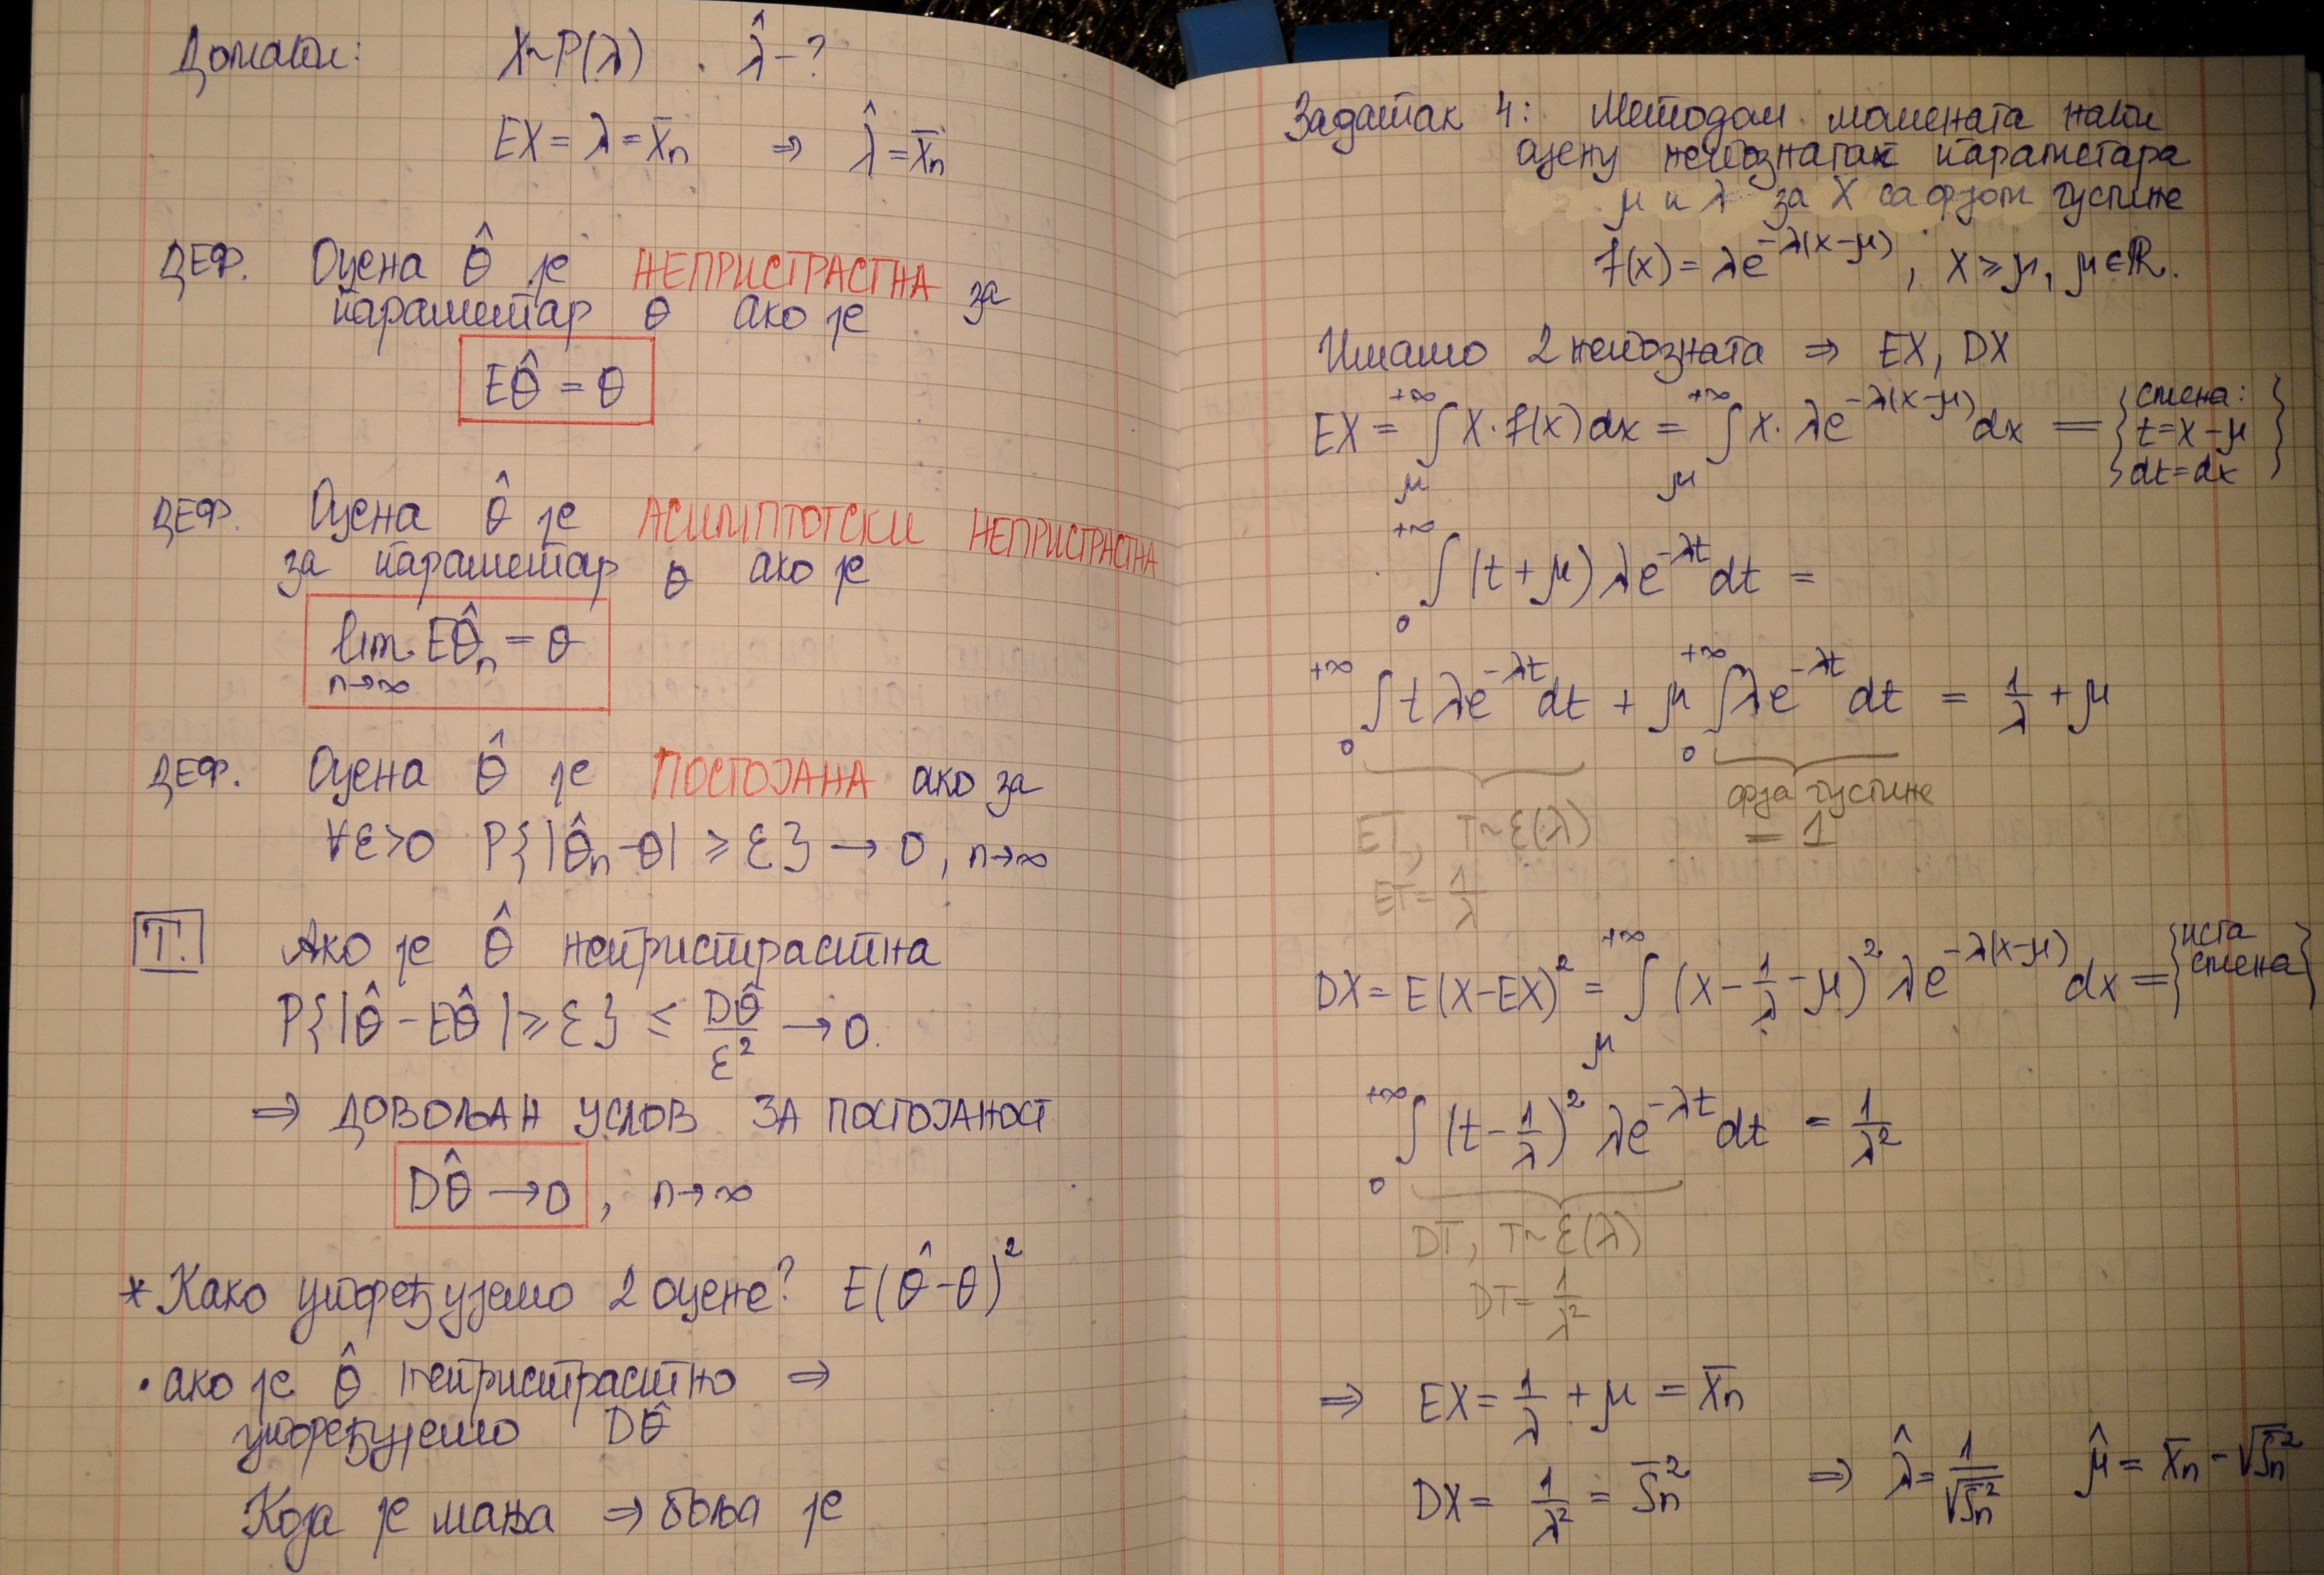 Домаћи: X~P(λ) . λ̂-?
EX = λ = X̄n ⇒ λ̂ = X̄n
ДЕФ. Оцена θ̂ је НЕПРИСТРАСТНА за
параметар θ ако је
Eθ̂ = θ
ДЕФ. Оцена θ̂ је АСИМПТОТСКИ НЕПРИСТРАСТНА
за параметар θ ако је
lim Eθ̂n = θ
n→∞
ДЕФ. Оцена θ̂ је ПОСТОЈАНА ако за
∀ε>0 P{|θ̂n-θ| ≥ ε} → 0, n→∞
Т. Ако је θ̂ непристрастна
P{|θ̂ - Eθ̂| ≥ ε} ≤ Dθ̂/ε² → 0.
⇒ ДОВОЉАН УСЛОВ ЗА ПОСТОЈАНОСТ
Dθ̂ → 0, n→∞
* Како упоређујемо 2 оцене? E(θ̂-θ)²
• ако је θ̂ непристрастно ⇒
упоређујемо Dθ̂
Која је мања ⇒ боља је
Задатак 4: Методом момената наћи
оцену непознатих параметара
μ и λ за X са фјом густине
f(x) = λe^{-λ(x-μ)}, x ≥ μ, μ∈ℝ.
Имамо 2 непозната ⇒ EX, DX
EX = ∫_μ^{+∞} x·f(x)dx = ∫_μ^{+∞} x·λe^{-λ(x-μ)}dx = {смена: t=x-μ dt=dx}
∫_0^{+∞} (t+μ)λe^{-λt}dt =
∫_0^{+∞} tλe^{-λt}dt + μ∫_0^{+∞} λe^{-λt}dt = 1/λ + μ
фја густине
ET, T~ε(λ) = 1
ET = 1/λ
DX = E(X-EX)² = ∫_μ^{+∞} (x - 1/λ - μ)² λe^{-λ(x-μ)} dx = {иста смена}
∫_0^{+∞} (t - 1/λ)² λe^{-λt}dt = 1/λ²
DT, T~ε(λ)
DT = 1/λ²
⇒ EX = 1/λ + μ = X̄n
DX = 1/λ² = S̄n² ⇒ λ̂ = 1/√S̄n² μ̂ = X̄n - √S̄n²